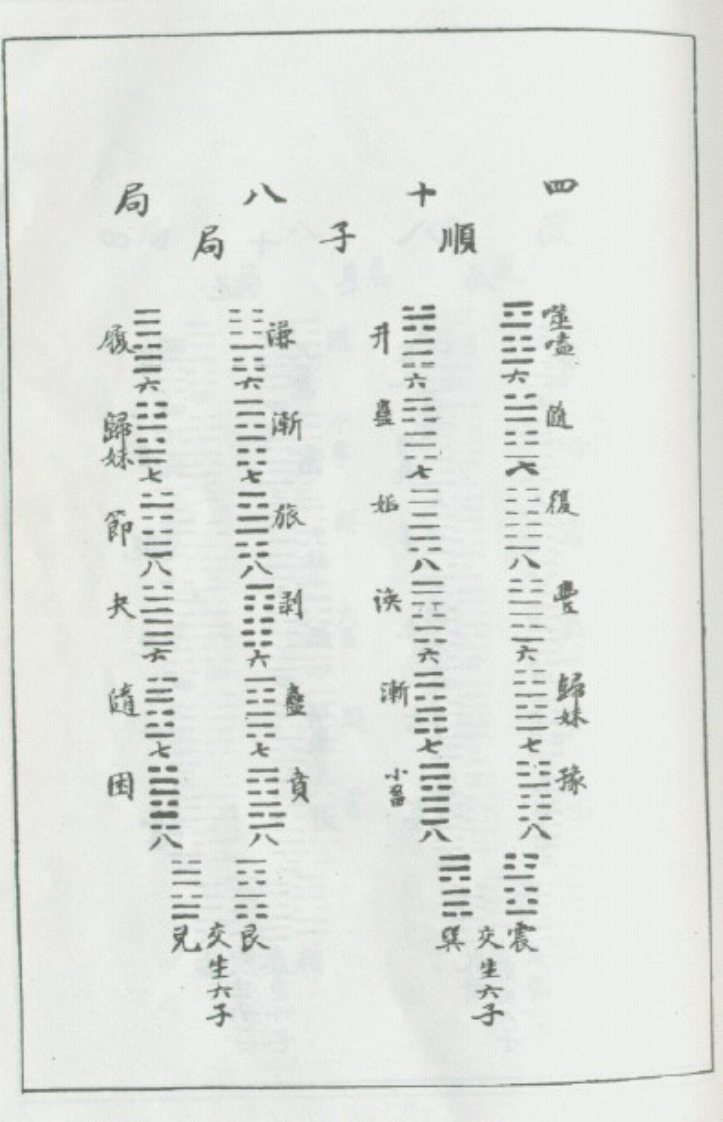 四十八局
順子局
噬嗑 隨 復 豐 歸妹 豫
六 七 八 六 七 八
震
升 蠱 姤 渙 漸 小畜
六 七 八 六 七 八
巽
交生六子
謙 漸 旅 剥 蠱 賁
六 七 八 六 七 八
艮
履 歸妹 節 夬 隨 困
六 七 八 六 七 八
兌
交生六子